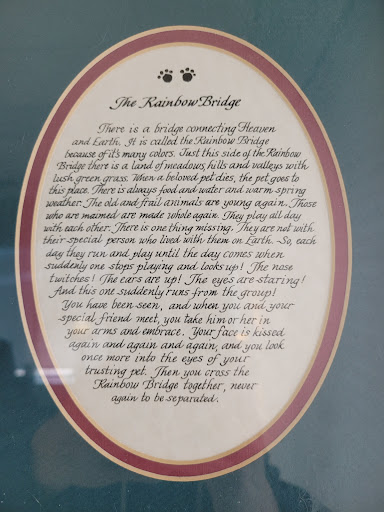 The Rainbow Bridge
There is a bridge connecting Heaven
and Earth. It is called the Rainbow Bridge
because of it's many colors. Just this side of the Rainbow
Bridge there is a land of meadows, hills and valleys with
lush green grass. When a beloved pet dies, the pet goes to
this place. There is always food and water and warm spring
weather. The old and frail animals are young again. Those
who are maimed are made whole again. They play all day
with each other. There is one thing missing. They are not with
their special person who lived with them on Earth. So, each
day they run and play until the day comes when
suddenly one stops playing and looks up! The nose
twitches! The ears are up! The eyes are staring!
And this one suddenly runs from the group!
You have been seen, and when you and your
special friend meet, you take him or her in
your arms and embrace. Your face is kissed
again and again and again, and you look
once more into the eyes of your
trusting pet. Then you cross the
Rainbow Bridge together, never
again to be separated.